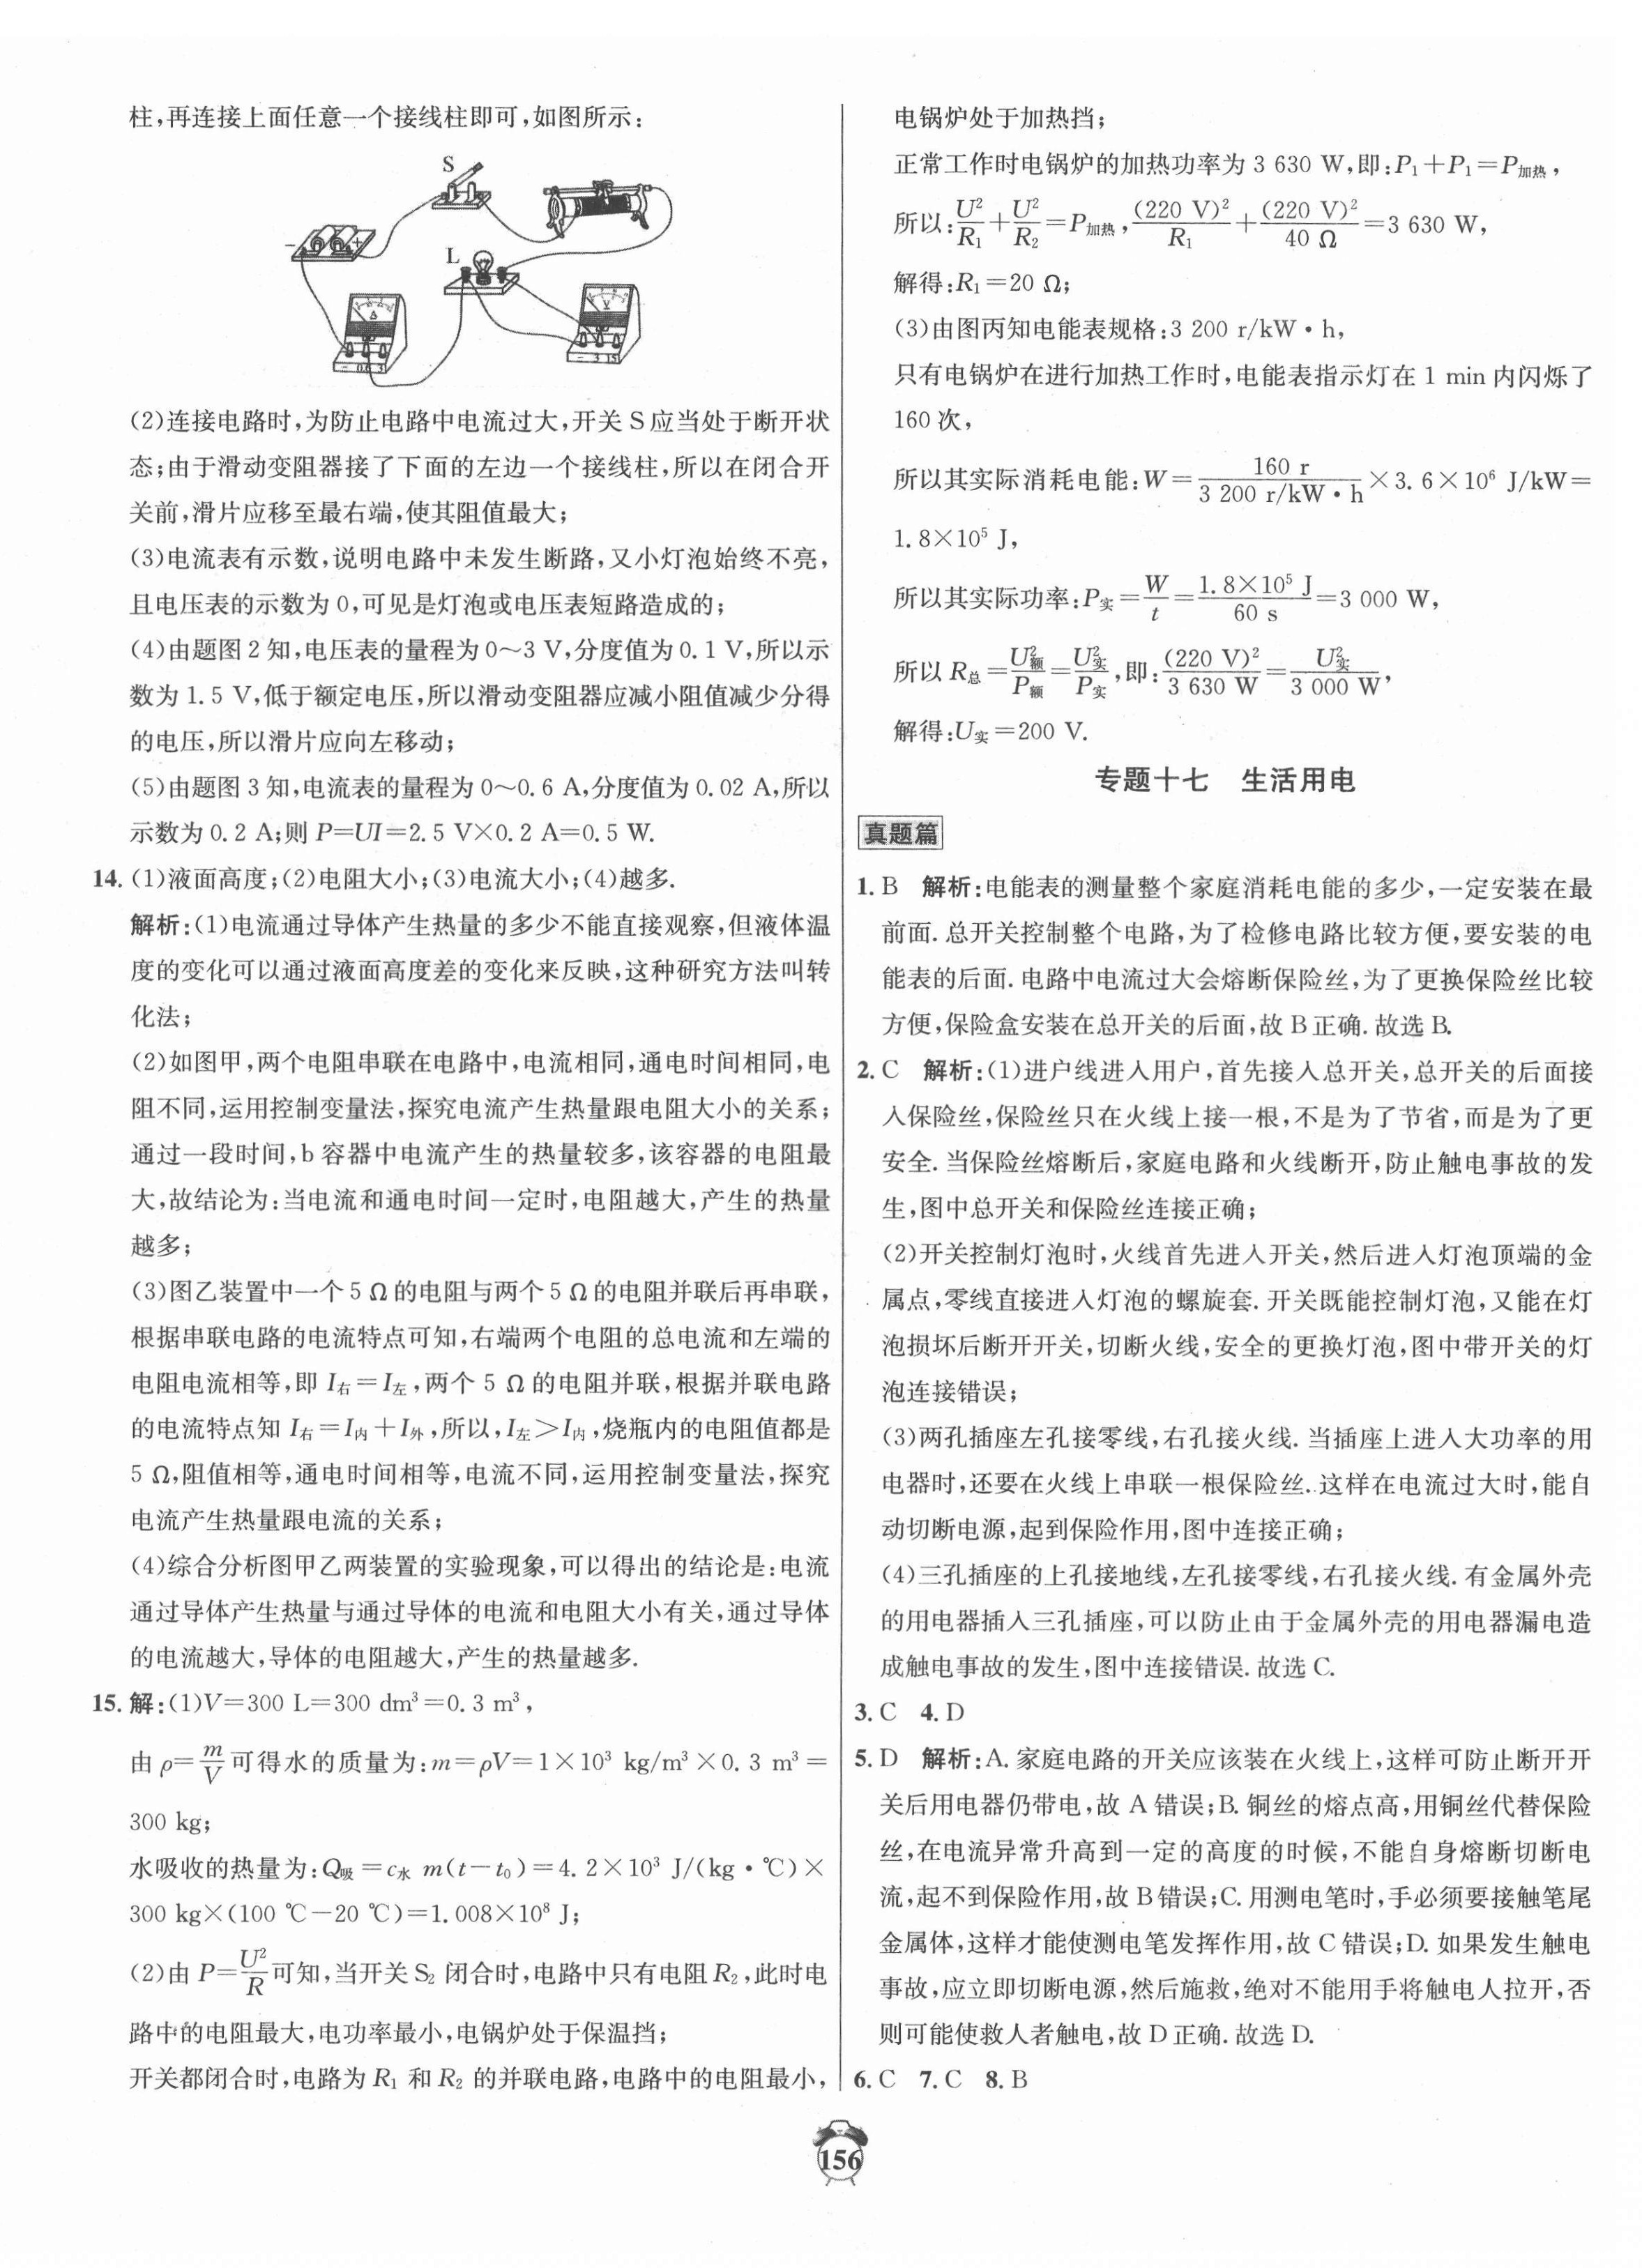 柱,再连接上面任意一个接线柱即可,如图所示:
S
L
- +
A
V
- 0.6 3
- 3 15
(2)连接电路时,为防止电路中电流过大,开关 S 应当处于断开状
态;由于滑动变阻器接了下面的左边一个接线柱,所以在闭合开
关前,滑片应移至最右端,使其阻值最大;
(3)电流表有示数,说明电路中未发生断路,又小灯泡始终不亮,
且电压表的示数为 0,可见是灯泡或电压表短路造成的;
(4)由题图 2 知,电压表的量程为 0~3 V,分度值为 0.1 V,所以示
数为 1.5 V,低于额定电压,所以滑动变阻器应减小阻值减少分得
的电压,所以滑片应向左移动;
(5)由题图 3 知,电流表的量程为 0~0.6 A,分度值为 0.02 A,所以
示数为 0.2 A;则 P=UI=2.5 V×0.2 A=0.5 W.
14. (1)液面高度;(2)电阻大小;(3)电流大小;(4)越多.
解析:(1)电流通过导体产生热量的多少不能直接观察,但液体温
度的变化可以通过液面高度差的变化来反映,这种研究方法叫转
化法;
(2)如图甲,两个电阻串联在电路中,电流相同,通电时间相同,电
阻不同,运用控制变量法,探究电流产生热量跟电阻大小的关系;
通过一段时间,b 容器中电流产生的热量较多,该容器的电阻最
大,故结论为:当电流和通电时间一定时,电阻越大,产生的热量
越多;
(3)图乙装置中一个 5 Ω 的电阻与两个 5 Ω 的电阻并联后再串联,
根据串联电路的电流特点可知,右端两个电阻的总电流和左端的
电阻电流相等,即 I右=I左,两个 5 Ω 的电阻并联,根据并联电路
的电流特点知 I右=I内+I外,所以,I左>I内,烧瓶内的电阻值都是
5 Ω,阻值相等,通电时间相等,电流不同,运用控制变量法,探究
电流产生热量跟电流的关系;
(4)综合分析图甲乙两装置的实验现象,可以得出的结论是:电流
通过导体产生热量与通过导体的电流和电阻大小有关,通过导体
的电流越大,导体的电阻越大,产生的热量越多.
15. 解:(1)V=300 L=300 dm³=0.3 m³,
由 ρ=m/V 可得水的质量为:m=ρV=1×10³ kg/m³×0.3 m³=
300 kg;
水吸收的热量为:Q吸=c水 m(t-t₀)=4.2×10³ J/(kg·℃)×
300 kg×(100 ℃-20 ℃)=1.008×10⁸ J;
(2)由 P=U²/R 可知,当开关 S₂ 闭合时,电路中只有电阻 R₂,此时电
路中的电阻最大,电功率最小,电锅炉处于保温挡;
开关都闭合时,电路为 R₁ 和 R₂ 的并联电路,电路中的电阻最小,
电锅炉处于加热挡;
正常工作时电锅炉的加热功率为 3 630 W,即:P₁+P₁=P加热,
所以:U²/R₁+U²/R₂=P加热,(220 V)²/R₁+(220 V)²/40 Ω=3 630 W,
解得:R₁=20 Ω;
(3)由图丙知电能表规格:3 200 r/kW·h,
只有电锅炉在进行加热工作时,电能表指示灯在 1 min 内闪烁了
160 次,
所以其实际消耗电能:W=160 r/3 200 r/kW·h×3.6×10⁶ J/kW=
1.8×10⁵ J,
所以其实际功率:P实=W/t=1.8×10⁵ J/60 s=3 000 W,
所以 R总=U²额/P额=U²实/P实,即:(220 V)²/3 630 W=U²实/3 000 W,
解得:U实=200 V.
专题十七 生活用电
真题篇
1. B 解析:电能表的测量整个家庭消耗电能的多少,一定安装在最
前面.总开关控制整个电路,为了检修电路比较方便,要安装的电
能表的后面.电路中电流过大会熔断保险丝,为了更换保险丝比较
方便,保险盒安装在总开关的后面,故 B 正确.故选 B.
2. C 解析:(1)进户线进入用户,首先接入总开关,总开关的后面接
入保险丝,保险丝只在火线上接一根,不是为了节省,而是为了更
安全.当保险丝熔断后,家庭电路和火线断开,防止触电事故的发
生,图中总开关和保险丝连接正确;
(2)开关控制灯泡时,火线首先进入开关,然后进入灯泡顶端的金
属点,零线直接进入灯泡的螺旋套.开关既能控制灯泡,又能在灯
泡损坏后断开开关,切断火线,安全的更换灯泡,图中带开关的灯
泡连接错误;
(3)两孔插座左孔接零线,右孔接火线.当插座上进入大功率的用
电器时,还要在火线上串联一根保险丝.这样在电流过大时,能自
动切断电源,起到保险作用,图中连接正确;
(4)三孔插座的上孔接地线,左孔接零线,右孔接火线.有金属外壳
的用电器插入三孔插座,可以防止由于金属外壳的用电器漏电造
成触电事故的发生,图中连接错误.故选 C.
3. C 4. D
5. D 解析:A.家庭电路的开关应该装在火线上,这样可防止断开开
关后用电器仍带电,故 A 错误;B.铜丝的熔点高,用铜丝代替保险
丝,在电流异常升高到一定的高度的时候,不能自身熔断切断电
流,起不到保险作用,故 B 错误;C.用测电笔时,手必须要接触笔尾
金属体,这样才能使测电笔发挥作用,故 C 错误;D.如果发生触电
事故,应立即切断电源,然后施救,绝对不能用手将触电人拉开,否
则可能使救人者触电,故 D 正确.故选 D.
6. C 7. C 8. B
156